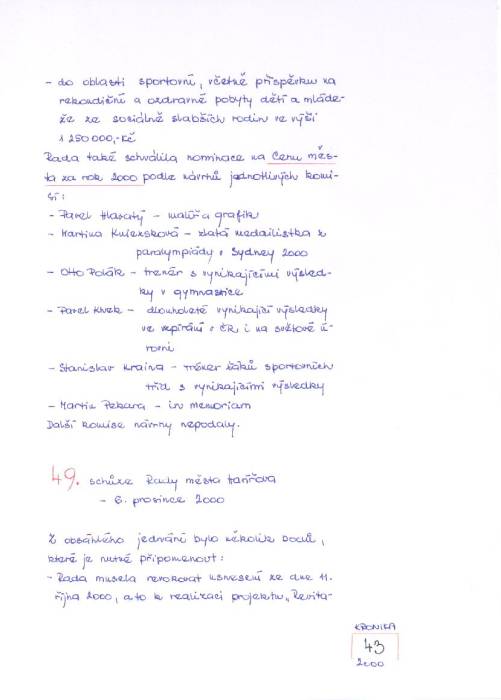 - do oblasti sportovní, včetně příspěvku na
rekondiční a ozdravné pobyty dětí a mláde-
že ze sociálně slabších rodin ve výši
1 250 000,-Kč
Rada také schválila nominace na Cenu měs-
ta za rok 2000 podle návrhů jednotlivých komi-
sí:
- Pavel Hlavatý - malíř a grafik
- Martina - zlatá medailistka z
paralympiády v Sydney 2000
- Otto Polák - trenér s vynikajícími výsled-
ky v gymnastice
- Pavel - dlouholeté vynikající výsledky
ve vzpírání v ČR i na světové ú-
rovni
- Stanislav Kraina - trenér žáků sportovních
tříd s vynikajícími výsledky
- Martin Pekara - in memoriam
Další komise návrhy nepodaly.
49. schůze Rady města Havířova
- 6. prosince 2000
Z obsáhlého jednání bylo několik bodů,
které je nutné připomenout:
- Rada musela revokovat usnesení ze dne 11.
října 2000, a to k realizaci projektu „Revita-
KRONIKA
43
2000